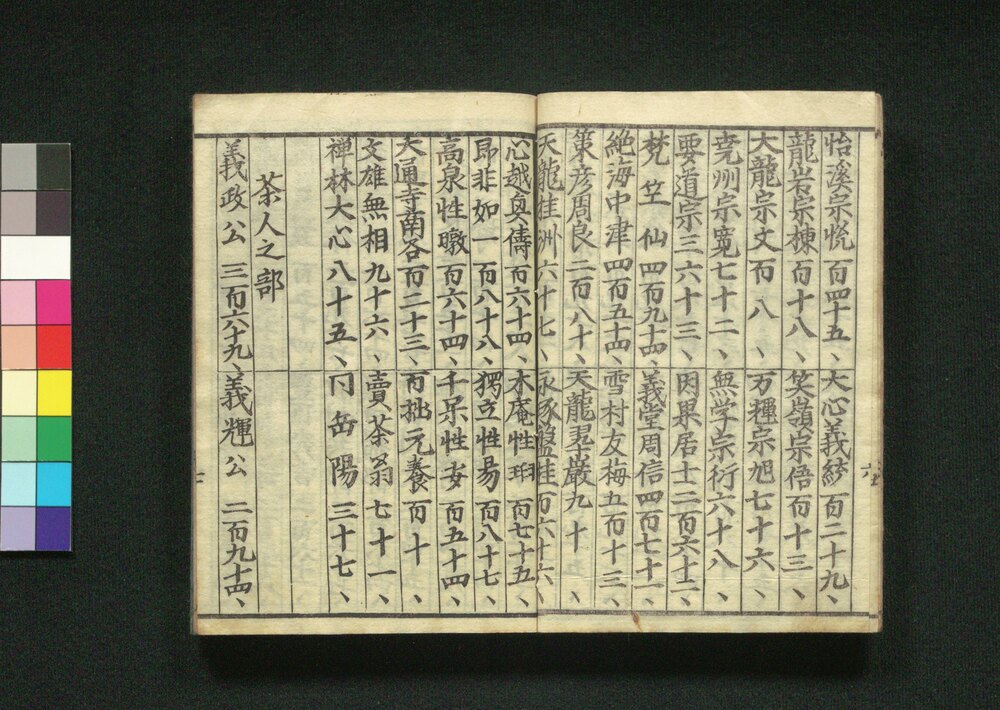 怡溪宗悦 百四十五、大心義統 百二十九、
龍岩宗棟 百十八、笑嶺宗悟 百十三、
大龍宗文 百八、万種宗旭 七十六、
堯州宗寛 七十二、無学宗衍 六十八、
要道宗三 六十三、因果居士 二百六十二、
梵竺仙 四百九十四、義堂周信 四百七十一、
絶海中津 四百五十四、雪村友梅 五百十三、
策彦周良 二百八十、天龍翠巌 九十、
天龍桂洲 六十七、永琢盤桂 百六十六、
心越興儔 百六十四、木庵性瑫 百七十五、
即非如一 百八十八、獨立性易 百八十七、
高泉性暾 百六十四、千呆性安 百五十四、
大通寺南谷 百二十三、百拙元養 百十、
文雄無相 九十六、賣茶翁 七十一、
禅林大心 八十五、冂岳陽 三十七、
茶人之部
義政公 三百六十九、義輝公 二百九十四、